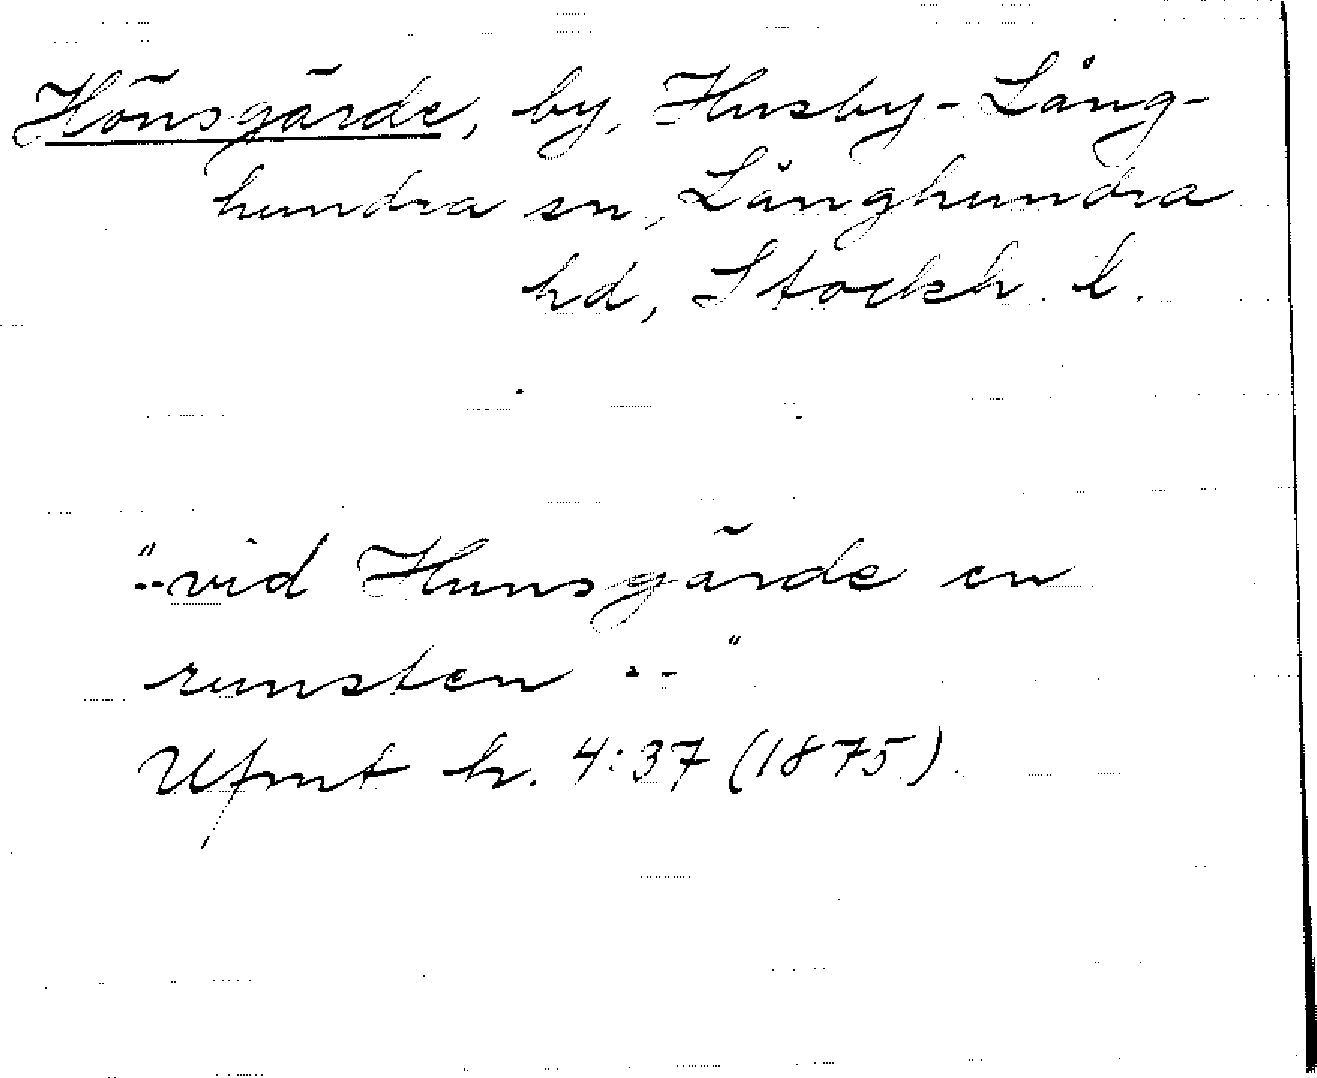 Hönsgärde, by, Husby-Lång-
hundra sn, Långhundra
hd, Stockh. l.
"..vid Hunsgärde en
runsten .."
Ufmt h. 4:37 (1875).